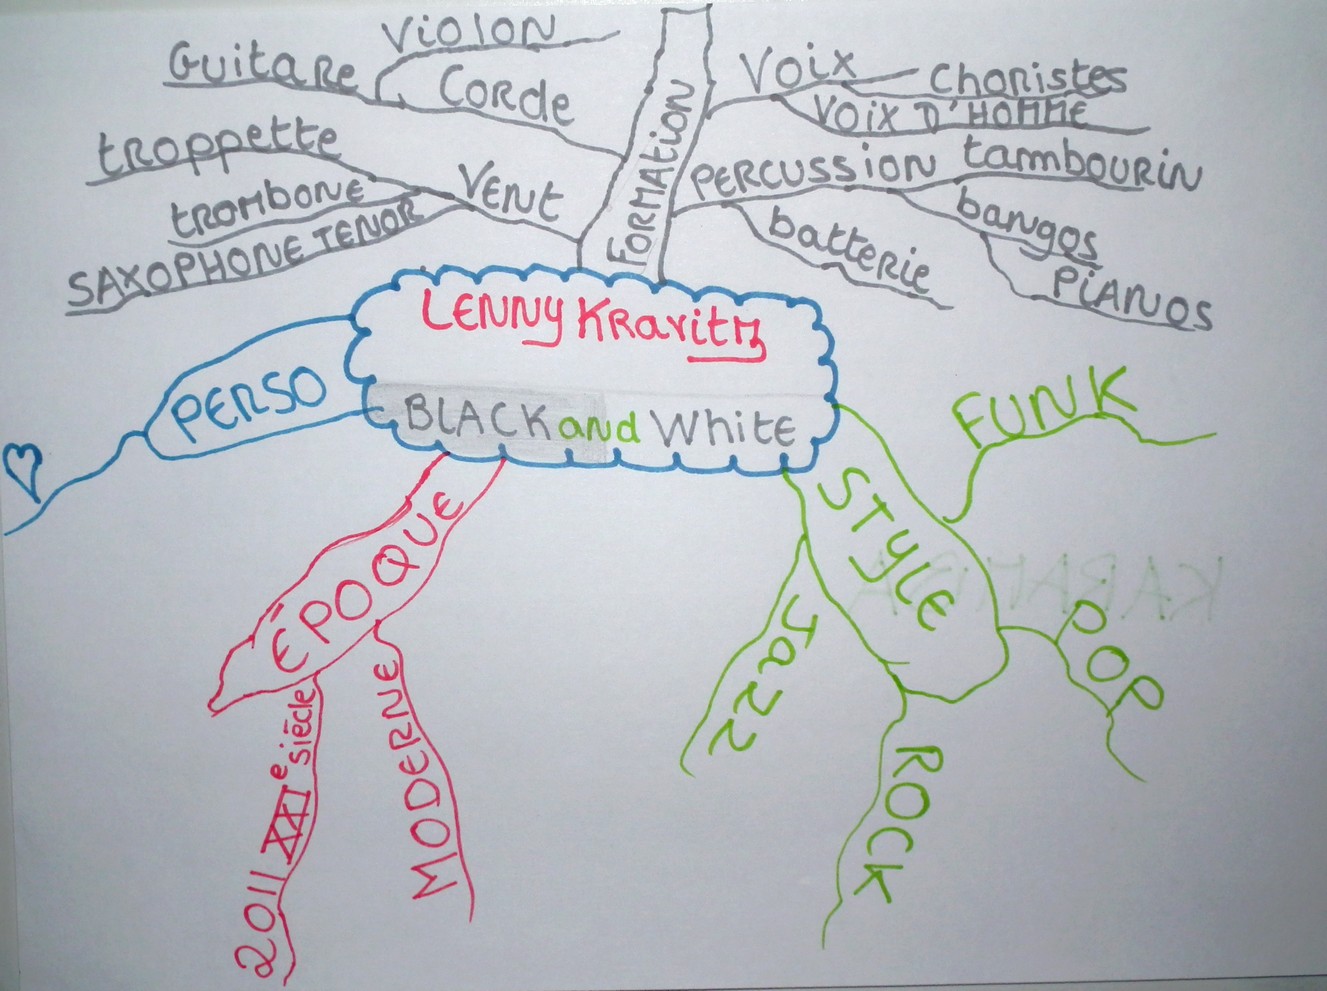 VIOLON
Guitare
Corde
troppette
VENt
tROMBONE
SAXOPHONE TENOR
FORMAtion
Voix
Choristes
VOIX D'HOMME
PERCUSSION
tambourin
bangos
PIANOS
batterie
LENNY Kravitz
BLACK and White
PERSO
ÉPOQUE
2011 XXIe siècle
MODERNE
STYLE
FUNK
POP
ROCK
Jazz